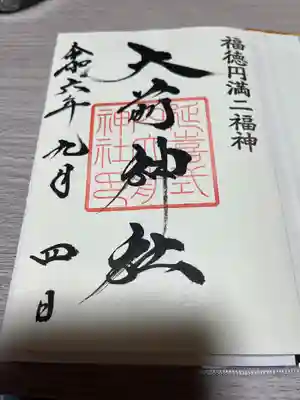 福徳円満二福神
大前神社
延喜式
内大前
神社
令和六年九月四日